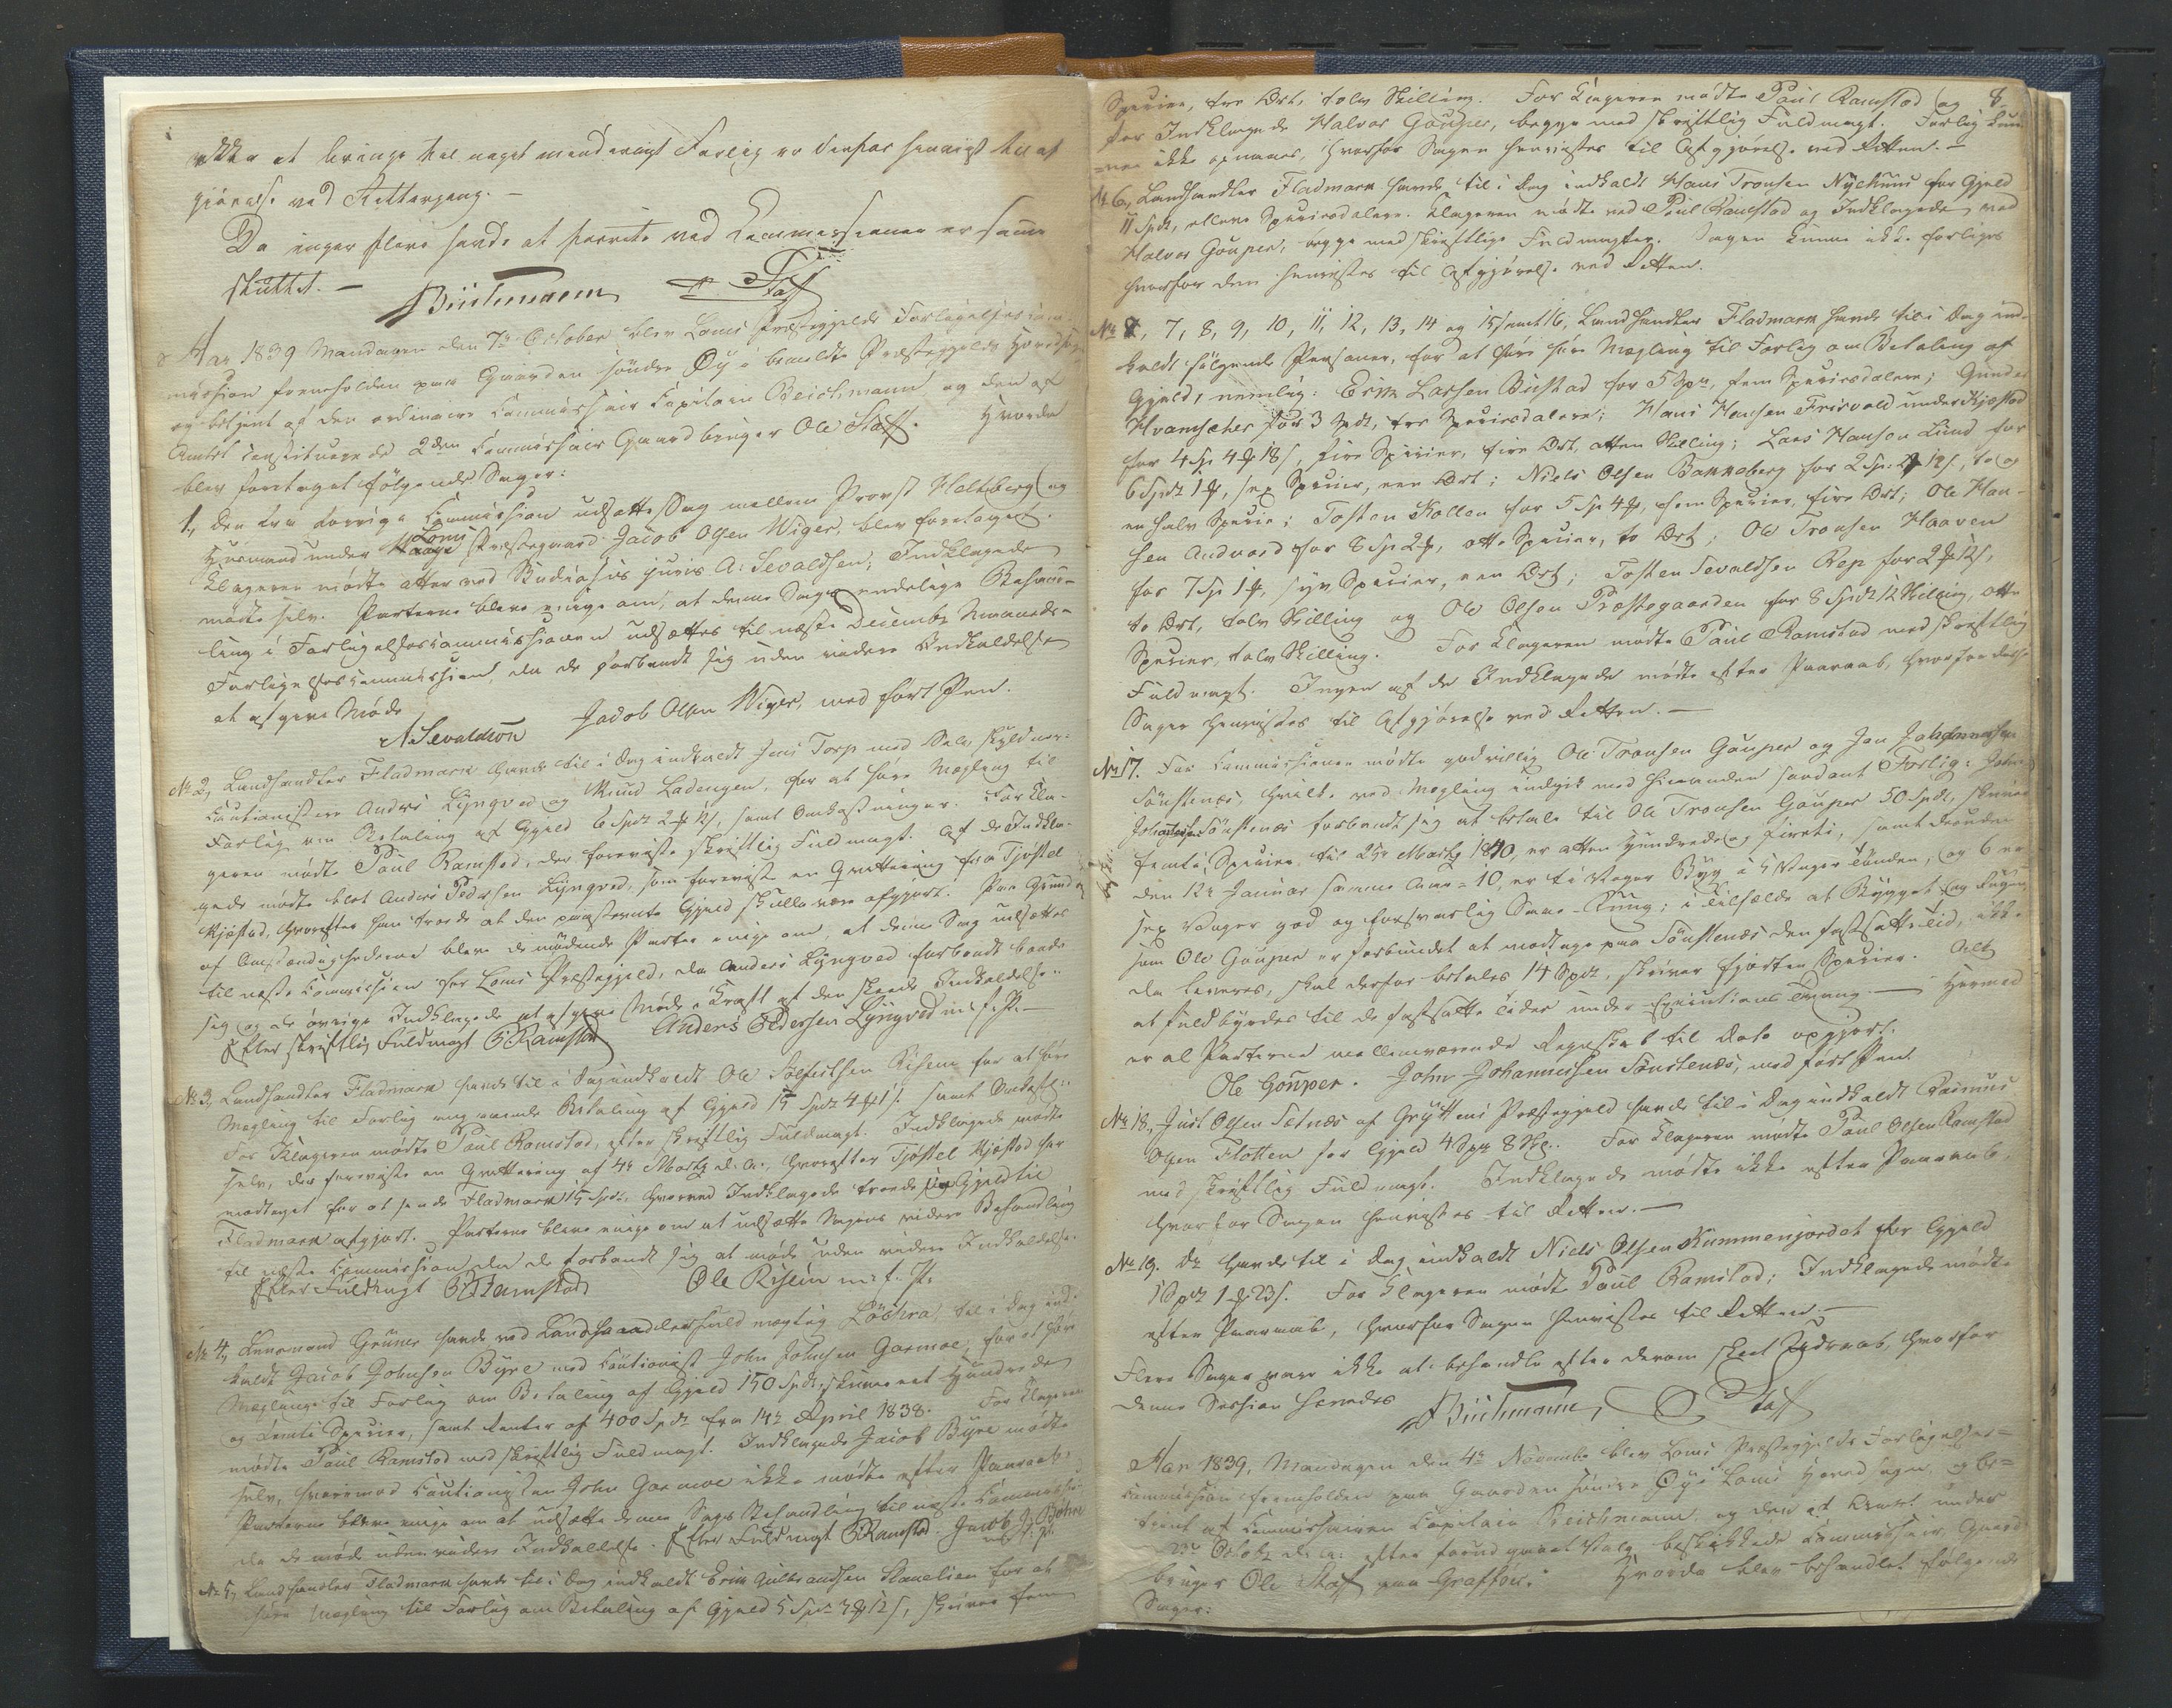 ikke at bringe til noget mindeligt Forlig er derfor henviist til Af
gjørelse ved Rettergang. —
Da ingen flere havde at forrette ved Commissionen er samme
sluttet. —
Beichmann Staff
Aar 1839 Mandagen den 7de October blev Loms Præstegjelds Forligelsescom-
mission fremholden paa Gaarden søndre Øy i bemeldte Præstegjelds Hovedsogn
og betjent af den ordinaire Commissair Capitain Beichmann og den af
Amtet constituerede 2den Commissair Gaardbruger Ole Staff. Hvorda
blev foretaget følgende Sager:
1, Den fra forrige Commission udsatte Sag mellem Provst Holtzberg og
Huusmand under Loms Præstegaard Jacob Olsen Wiger, blev foretaget.
Klageren mødte atter ved Studiosus juris A. Sevaldsen; Indklagede
mødte selv. Parterne bleve enige om, at denne Sags endelige Behand-
ling i Forligelsescommissionen udsættes til næste Decembr Maaneds-
Forligelsescommission, da de forbandt sig uden videre Indkaldelse
at afgive Møde
A Sevaldson Jacob Olsen Wiger, med ført Pen.
No 2, Landhandler Fladmark havde til i Dag indkaldt Jens Torp med Selv skyldner-
Cautionisterne Anders Lyngved og Knud Ladengen, for at høre Mægling til
Forlig om Betaling af Gjeld 6 Spd 2 ₰ 21 s, samt Omkostninger. For Kla-
geren mødte Poul Ramstad, der foreviste skriftlig Fuldmagt. Af de Indkla-
gede mødte blot Anders Pedersen Lyngved, som foreviste en Qvittering fra Tjøstel
Kjæstad, hvorefter han troede at den paastevnte Gjeld skulle være afgjort. Paa Grund
af Omstændighederne bleve de mødende Parter enige om, at denne Sag udsættes
til næste Commission for Loms Præstegjeld, da Anders Lyngved forbandt baade
sig og de øvrige Indklagede at afgive Møde i Kraft af den skeede Indkaldelse.
Efter skriftlig Fuldmagt P Ramstad Anders Pedersen Lyngved m. f. P. —
No 3, Landhandler Fladmark havde til i Dag indkaldt Ole Sølfestsen Risheim for at høre
Mægling til Forlig angaaende Betaling af Gjeld 15 Spd 4 ₰ 1 s. samt Omkost.:
For Klageren mødte Poul Ramstad, efter skriftlig Fuldmagt. Indklagede mødte
selv, der foreviste en Qvittering af 4de Marts d. A., hvorefter Tjøstel Kjæstad har
modtaget for at sende Fladmark 15 Spd, hvorved Indklagede troede sin Gjeld til
Fladmark afgjort. Parterne bleve enige om at udsætte Sagens videre Behandling
til næste Commission da de forbandt sig at møde uden videre Indkaldelse.
Efter Fuldmagt P Ramstad Ole Risein m. f. P.
No 4, Lensmand Grüner havde ved Landhandlerfuldmægtig Løchra, til i Dag ind-
kaldt Jacob Johnsen Byre med Cautionist John Johnsen Garmoe, for at høre
Mægling til Forlig om Betaling af Gjeld 150 Spd, skriver eet Hundrede
og femti Specier, samt Renter af 400 Spd fra 14de April 1838. For Klageren
mødte Poul Ramstad med skriftlig Fuldmagt. Indklagede Jacob Byre mødte
selv, hvorimod Cautionisten John Garmoe ikke mødte efter Paaraab.
Parterne bleve enige om at udsætte denne Sags Behandling til næste Commission
da de møde uden videre Indkaldelse. Efter Fuldmagt P Ramstad. Jacob J. Böhre
m. f. P.
No 5, Landhandler Fladmark havde til i Dag indkaldt Erik Gulbrandsen Stamlien for at
høre Mægling til Forlig om Betaling af Gjeld 5 Spd 3 ₰ 12 s, skriver fem
8
Specier, tre Ort, tolv Skilling. For Klageren mødte Poul Ramstad og
for Indklagede Halvor Gouper, begge med skriftlig Fuldmagt. Forlig kun-
=ne ikke opnaaes, hvorfor Sagen henvistes til Afgjørelse ved Retten. —
No 6, Landhandler Fladmark havde til i Dag indkaldt Hans Tronsen Nyehuus for Gjeld
11 Spd, elleve Speciesdalere. Klageren mødte ved Poul Ramstad og Indklagede ved
Halvor Gouper, begge med skriftlige Fuldmagter. Sagen kunne ikke forliges
hvorfor den henvistes til Afgjørelse ved Retten.
No 7, 8, 9, 10, 11, 12, 13, 14 og 15, samt 16, Landhandler Fladmark havde til i Dag ind-
kaldt følgende Personer, for at høre Mægling til Forlig om Betaling af
Gjeld, nemlig: Erik Larsen Bustad for 5 Spd, fem Speciesdalere; Gunder
Hvamsether for 3 Spd, tre Speciesdalere; Hans Hansen Frisvold under Kjæstad
for 4 Sp 4 ₰ 18 s, fire Specier, fire Ort, atten Skilling; Lars Hanson Lund for
6 Spd 1 ₰, sex Specier, een Ort; Niels Olsen Bakkeberg for 2 Sp. 2 ₰ 12 s, to og
en halv Specie; Tosten Kollen for 5 Sp 4 ₰, fem Specier, fire Ort; Ole Han-
sen Andvord for 8 Sp 2 ₰, otte Specier, to Ort; Ole Tronsen Haaven
for 7 Sp 1 ₰, syv Specier, een Ort; Tosten Sevaldsen Rep for 2 ₰ 12 s,
to Ort, tolv Skilling og Ole Olsen Præstegaarden for 8 Spd 12 Skilling, otte
Specier, tolv Skilling. For Klageren mødte Poul Ramstad med skriftlig
Fuldmagt. Ingen af de Indklagede mødte efter Paaraab, hvorfor disse
Sager henvistes til Afgjørelse ved Retten. —
No 17. For Commissionen mødte godvillig Ole Tronsen Gouper og John Johannessen
Sønstenæs, hvilke ved Mægling indgik med hinanden saadant Forlig: John
Johannessen Sønstenæs forbandt sig at betale til Ole Tronsen Gouper 50 Spd, skriver
femti Specier, til 25de Marts 1840, er atten Hundrede og fireti, samt desuden
den 12te Januar samme Aar = 10, er ti Voger Byg à 4 Voger Tønden, og 6 er
sex Voger god og forsvarlig Saae-Rug; i Tilfælde at Bygget og Rugen,
som Ole Gouper er forbundet at modtage paa Sønstenæs den fastsatte Tid, ikke
da leveres, skal derfor betales 14 Spd, skriver fjorten Specier. Alt
at fuldbyrdes til de fastsatte Tider under Executions Tvang. — Hermed
er al Parterne mellemværende Regnskab til Dato opgjort.
Ole Gouper. John Johannessen Sønstenæs, med ført Pen.
No 18, Just Olsen Setnæs af Gryttens Præstegjeld havde til i Dag indkaldt Rasmus
Olsen Flotten for Gjeld 4 Spd 8 Sk.. For Klageren mødte Poul Olsen Ramstad
med skriftlig Fuldmagt. Indklagede mødte ikke efter Paaraab,
hvorfor Sagen henvistes til Retten. —
No 19. Do havde til i Dag indkaldt Niels Olsen Kummenjordet for Gjeld
1 Spd 1 ₰ 23 s. For Klageren mødte Poul Ramstad; Indklagede mødte
efter Paaraab, hvorfor Sagen henvistes til Retten. —
Flere Sager vare ikke at behandle efter derom skeet Udraab, hvorfor
denne Session hævedes
Beichmann, O Staff
Aar 1839, Mandagen den 4de Novembr blev Loms Præstegjelds Forligelses=
commission fremholden paa Gaarden søndre Øy i Loms Hovedsogn, og be=
tjent af Commissairen Capitain Beichmann, og den af Amtet under
Octobr d. A. efter forudgaaet Valg beskikkede Commissair, Gaard
bruger Ole Staff paa Graffer. Hvorda blev behandlet følgende
Sager: